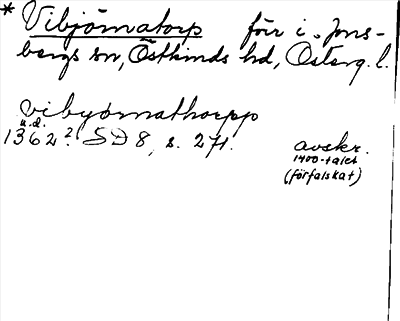 * Vibjörnatorp förr i Jons-
bergs sn, Östkinds hd, Österg. l.
vibyørnathorpp
u.d.
1362? SD 8, s. 271. avskr.
1400-talet
(förfalskat)